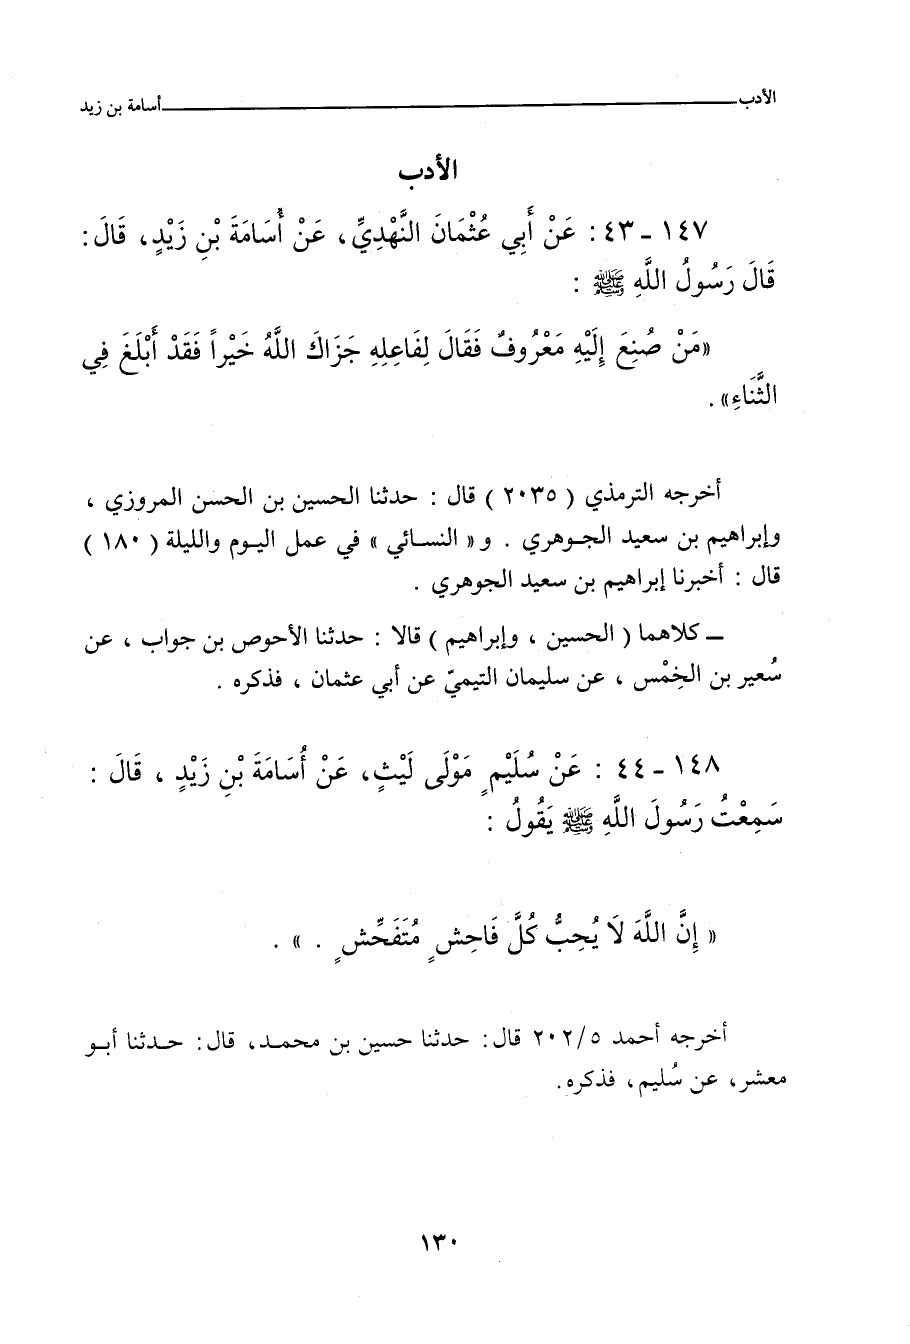 الأدب أسامة بن زيد
الأدب
١٤٧ - ٤٣ : عَنْ أَبِي عُثْمَانَ النَّهْدِيِّ، عَنْ أُسَامَةَ بْنِ زَيْدٍ، قَالَ:
قَالَ رَسُولُ اللَّهِ ﷺ :
«مَنْ صُنِعَ إِلَيْهِ مَعْرُوفٌ فَقَالَ لِفَاعِلِهِ جَزَاكَ اللَّهُ خَيْراً فَقَدْ أَبْلَغَ فِي
الثَّنَاءِ» .
أخرجه الترمذي ( ٢٠٣٥ ) قال : حدثنا الحسين بن الحسن المروزي ،
وإبراهيم بن سعيد الجوهري . و« النسائي » في عمل اليوم والليلة ( ١٨٠ )
قال : أخبرنا إبراهيم بن سعيد الجوهري .
ــ كلاهما ( الحسين ، وإبراهيم ) قالا : حدثنا الأحوص بن جواب ، عن
سُعير بن الخِمْس ، عن سليمان التيميّ عن أبي عثمان ، فذكره .
١٤٨ - ٤٤ : عَنْ سُلَيْمٍ مَوْلَى لَيْثٍ، عَنْ أُسَامَةَ بْنِ زَيْدٍ ، قَالَ :
سَمِعْتُ رَسُولَ اللَّهِ ﷺ يَقُولُ :
« إِنَّ اللَّهَ لَا يُحِبُّ كُلَّ فَاحِشٍ مُتَفَحِّشٍ . » .
أخرجه أحمد ٢٠٢/٥ قال: حدثنا حسين بن محمد، قال: حدثنا أبو
معشر، عن سُليم، فذكره.
١٣٠